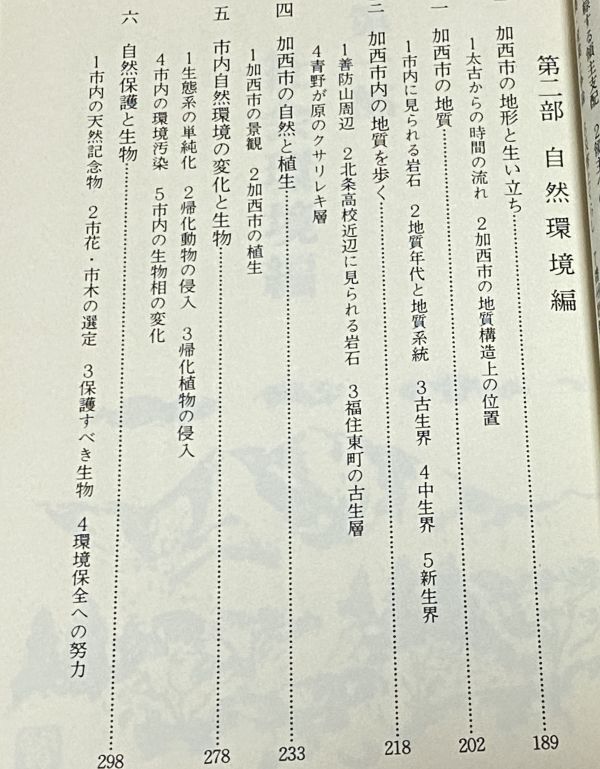 第二部 自然環境編
加西市の地形と生い立ち……189
1太古からの時間の流れ 2加西市の地質構造上の位置
加西市の地質……202
1市内に見られる岩石 2地質年代と地質系統 3古生界 4中生界 5新生界
加西市内の地質を歩く……218
1善防山周辺 2北条高校近辺に見られる岩石 3福住東町の古生層
4青野が原のクサリレキ層
四 加西市の自然と植生……233
1加西市の景観 2加西市の植生
五 市内自然環境の変化と生物……278
1生態系の単純化 2帰化動物の侵入 3帰化植物の侵入
4市内の環境汚染 5市内の生物相の変化
六 自然保護と生物……298
1市内の天然記念物 2市花・市木の選定 3保護すべき生物 4環境保全への努力